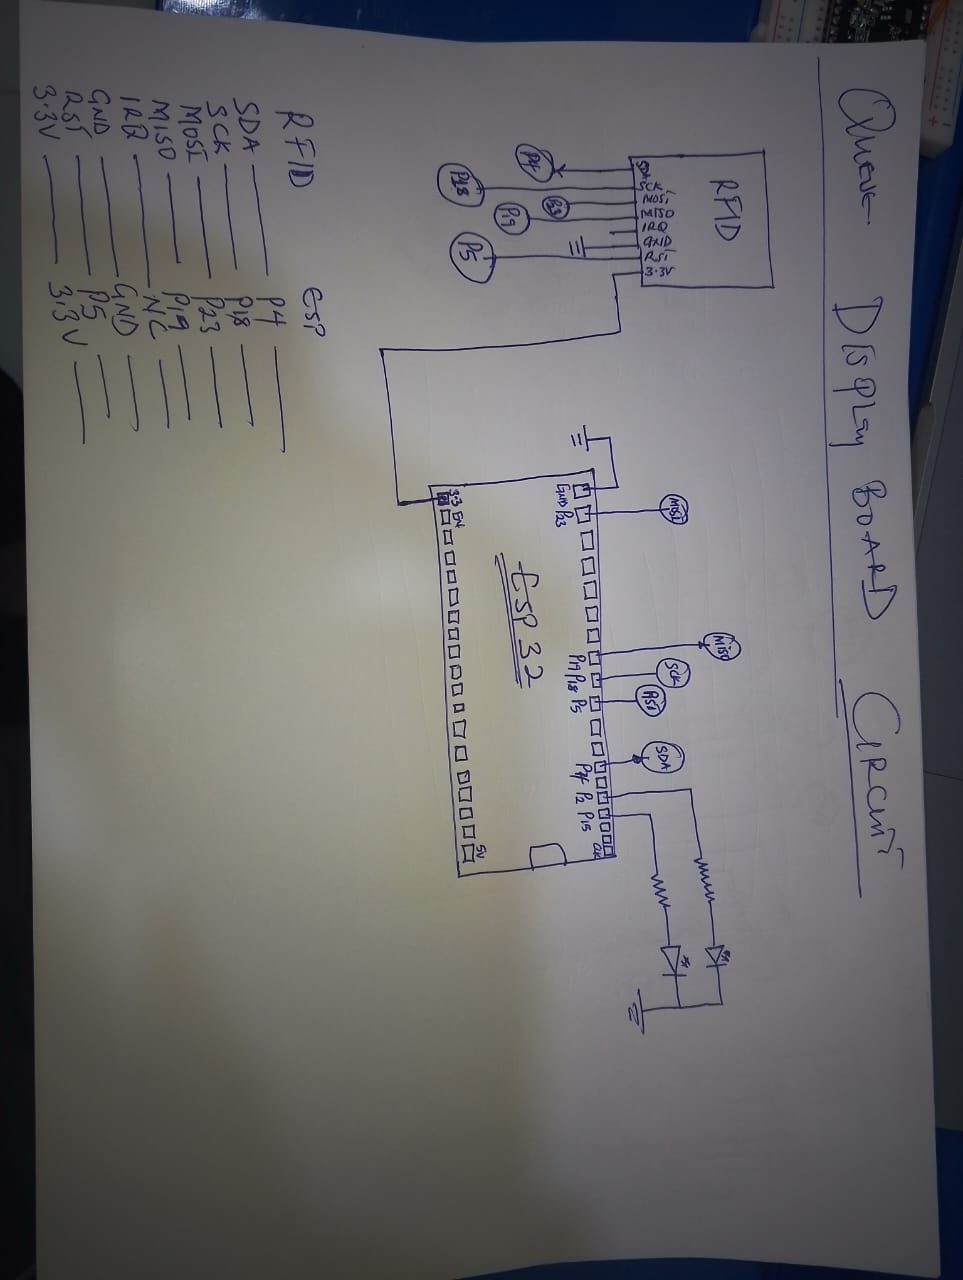 Queue Display BOARD CIRCUIT
RFID
SDA
SCK
MOSI
MISO
IRQ
GND
RST
3.3V
P4
P18
P23
P19
P5
GND P23
P19 P18 P5
P4 P2 P15
CLK
MOSI
MISO
SCK
RST
SDA
ESP 32
3.3 EN
5V
RFID ESP
SDA P4
SCK P18
MOSI P23
MISO P19
IRQ NC
GND GND
RST P5
3.3V 3.3V